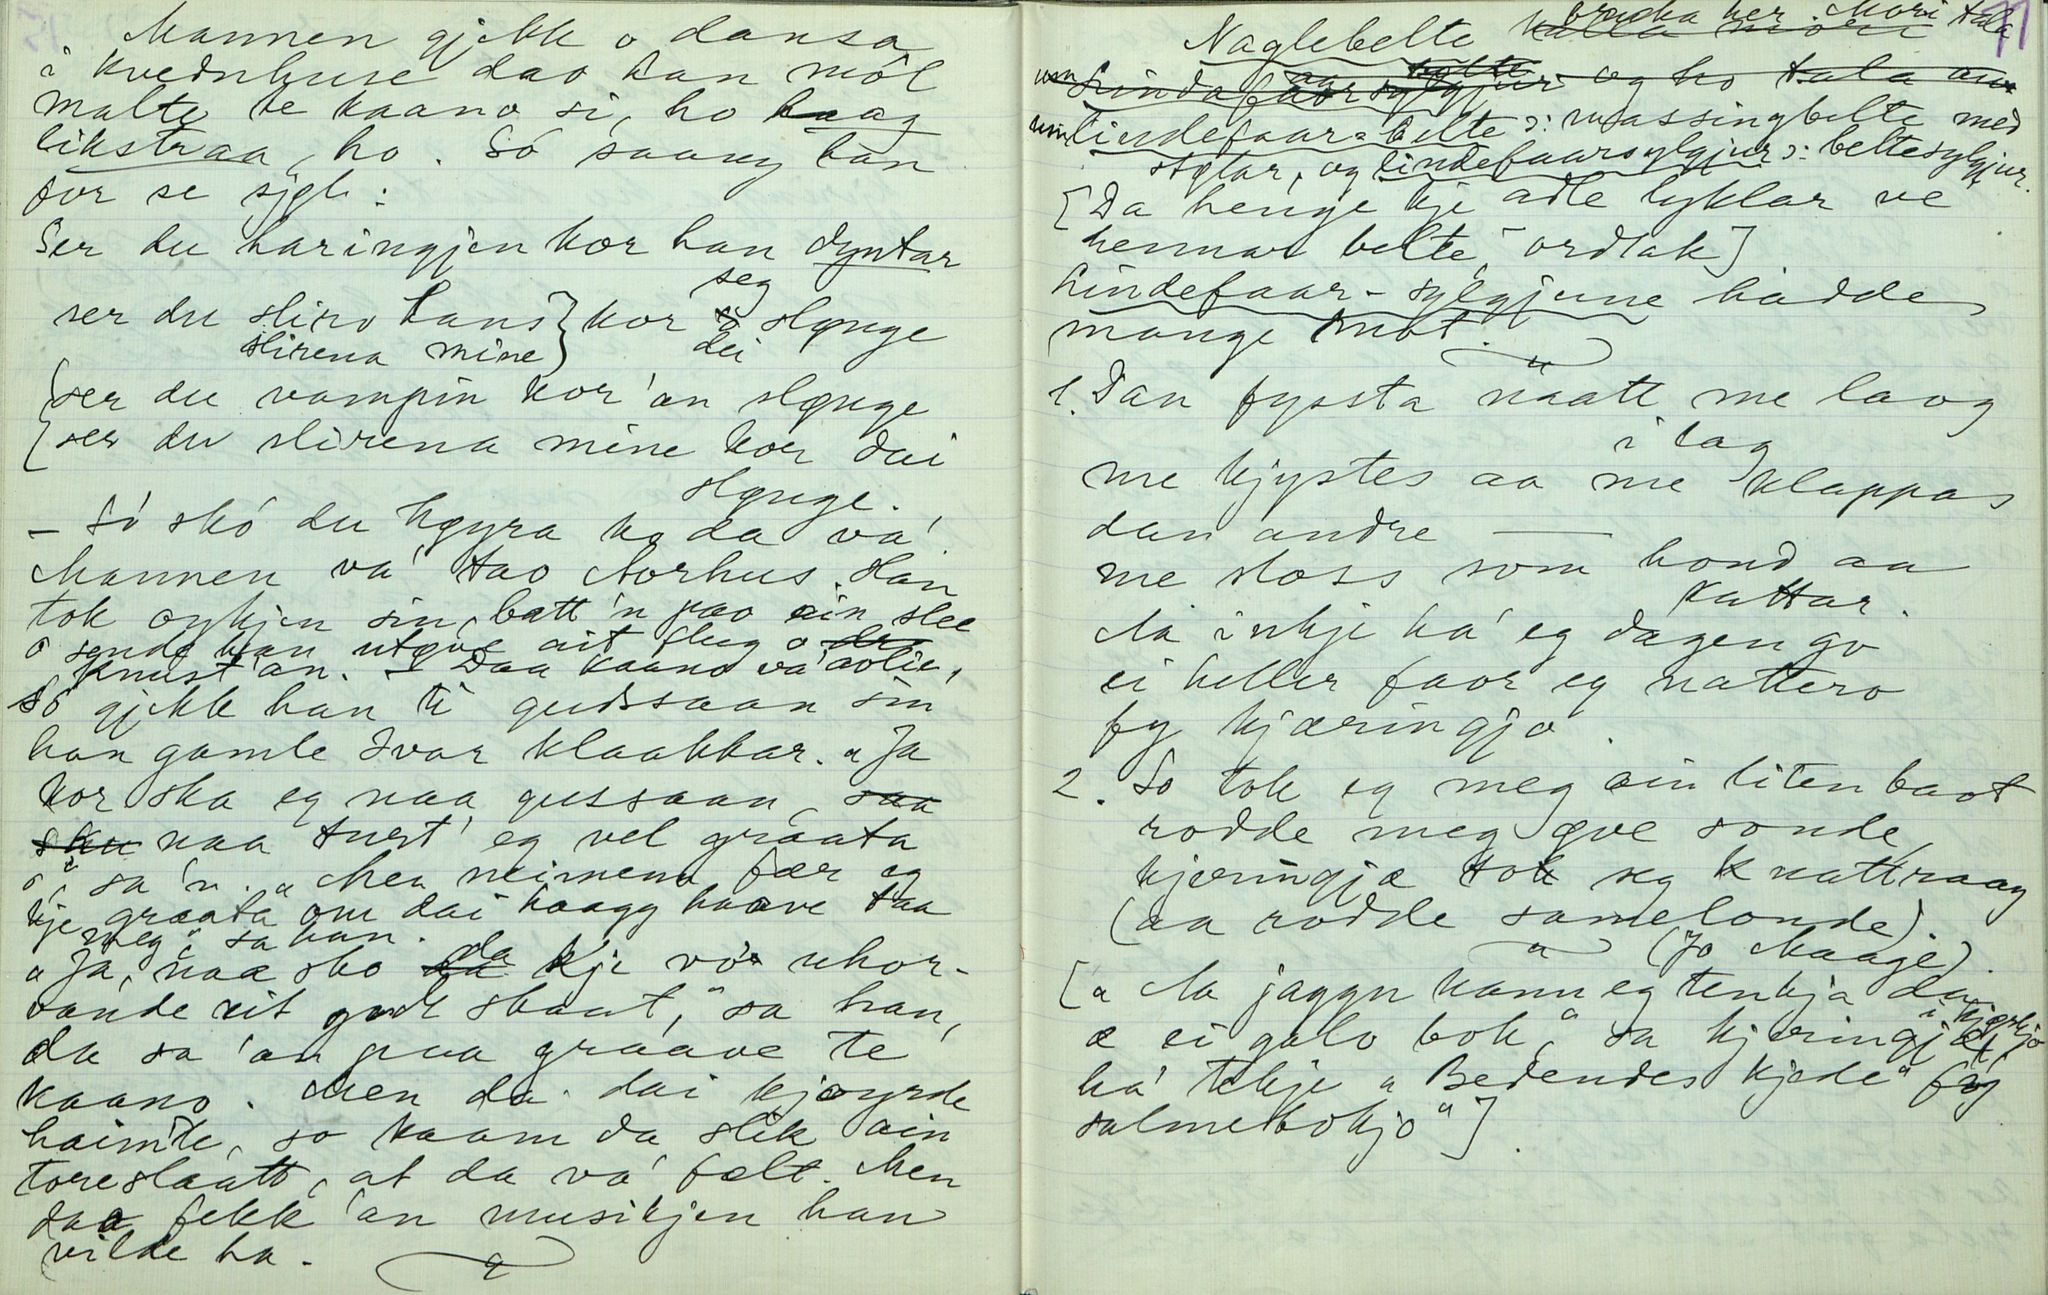 Mannen gjekk o dansa
i kvednhuse dao han môl
malte te kaano si, ho laag
likstraa, ho. Só saang han
for se sjøl:
Ser du haringjen kor han dyntar
ser du sliro hans } kor seg slønge
slirena mine } dei
[ser du vampin kor'an slønge
[ser du slirena mine kor dai
slønge.
- Só skó du høyra ko da va'.
Mannen va' tao Aarhus. Han
tok øykjen sin, batt'n pao ein slee
ó sende han utøve ait flug o
knust'an. - Daa kaano va' aolie,
só gjekk han ti gudssaan sin
han gamle Ivar Klaakkar. "Ja
kor ska eg naa gussaan, saa
sku naa turt' eg vel graata
ó," sa'n. "Men neimenn fær eg
kje graata om dai haagg haave taa
meg" sa han.
"Ja, naa sko da kje vó uhor-
vande eit godt skaut," sa han,
da sa'an paa graave te
kaano. Men da dai kjøyrde
haimte, so kaam da slik ain
toreslaatt, at da va' fælt. Men
daa fekk 'an musikjen han
vilde ha.
11
Naglebelte bruka her. Mari tala
um lindefaar-belte ɔ: massingbelte med
stølar, og lindefaarsylgjur ɔ: beltesylgjur.
[Da henge kje adle lyklar ve
hennar belte, ordtak]
Lindefaar-sylgjune hadde
mange mot.
1. Dan fyssta naatt me laag
i lag
me kjystes aa me klappas
dan andre —
me sloss som hond aa
kattar.
Aa inkje ha' eg dagen go
ei heller faar eg nattero
fy kjæringjo.
2. So tok eg meg ain liten baot
rodde meg øve sonde,
kjeringjæ tok seg knattraag
(aa rodde samelonde).
(Jo Maage).
["Aa jaggu kann eg tenkja da
æ ei galo bok", sa kjeringjæ i kjørkjo
ha' tekje "Bedendes kjede" før
salmebokjo"].